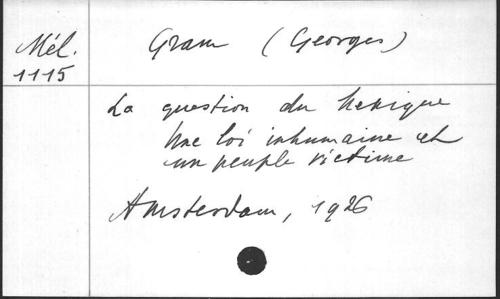 Mél.
1115
Gram (Georges)
La question du Mexique
Une loi inhumaine et
un peuple victime
Amsterdam, 1926